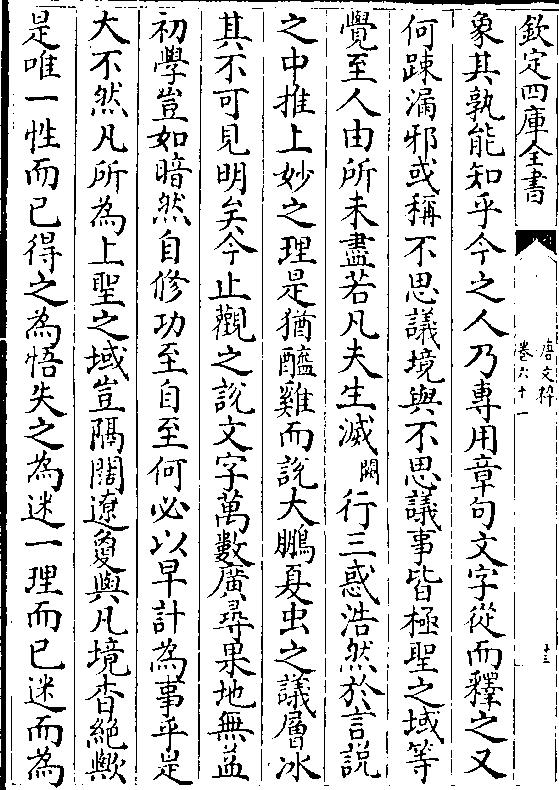 欽定四庫全書
唐文粹
卷六十一
十三
象其孰能知乎今之人乃專用章句文字從而釋之又
何踈漏邪或稱不思議境與不思議事皆極聖之域等
覺至人由所未盡若凡夫生滅闕行三惑浩然於言説
之中推上妙之理是猶醯雞而説大鵬夏虫之議層冰
其不可見明矣今止觀之説文字萬數廣尋果地無益
初學豈如暗然自修功至自至何必以早計為事乎是
大不然凡所為上聖之域豈隔闊遼夐與凡境杳絶歟
是唯一性而已得之為悟失之為迷一理而已迷而為